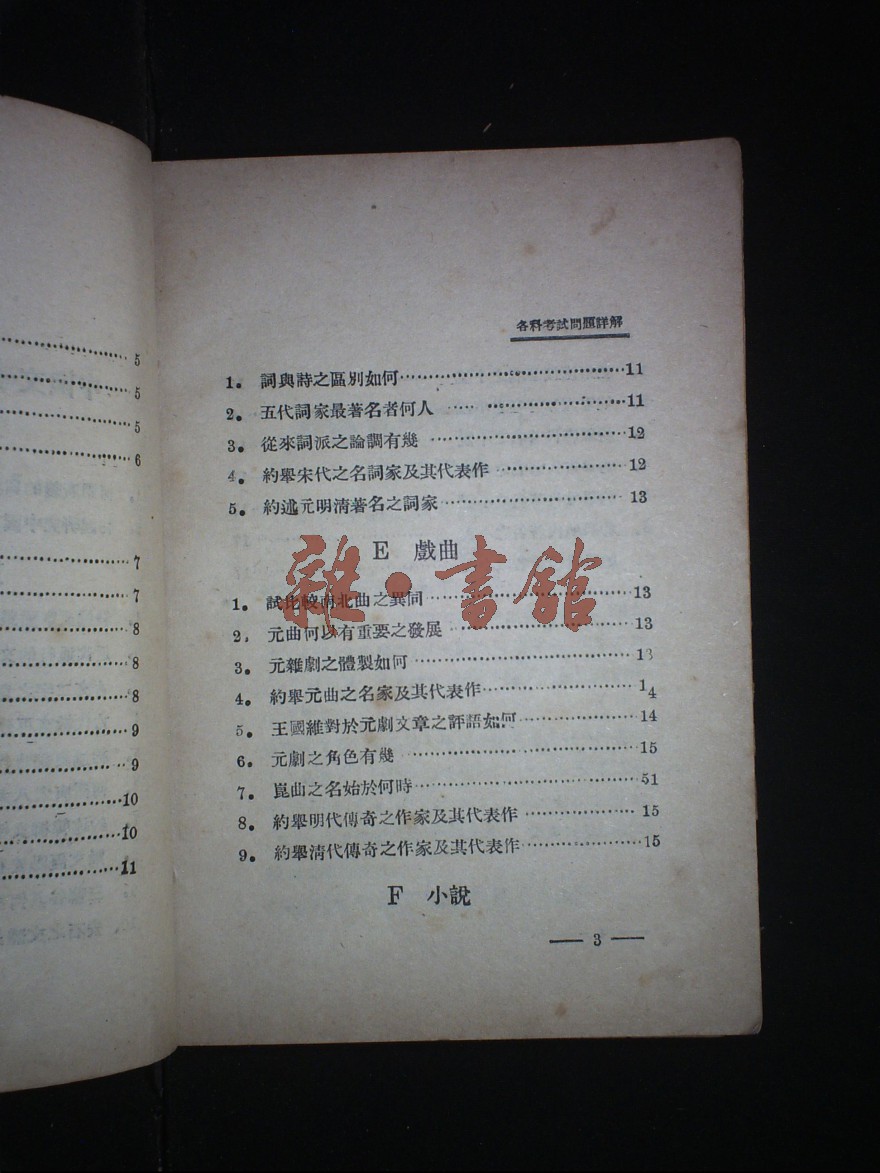 5
5
5
6
7
7
8
8
8
9
9
10
10
11
各科考試問題詳解
1。 詞與詩之區別如何……………………………11
2。 五代詞家最著名者何人……………………11
3。 從來詞派之論調有幾………………………12
4。 約舉宋代之名詞家及其代表作……………12
5。 約述元明清著名之詞家……………………13
E 戲曲
1。 試比較南北曲之異同………………………13
2。 元曲何以有重要之發展……………………13
3。 元雜劇之體製如何…………………………13
4。 約舉元曲之名家及其代表作………………14
5。 王國維對於元劇文章之評語如何…………14
6。 元劇之角色有幾……………………………15
7。 崑曲之名始於何時…………………………51
8。 約舉明代傳奇之作家及其代表作…………15
9。 約舉清代傳奇之作家及其代表作…………15
F 小說
— 3 —
雜·書館